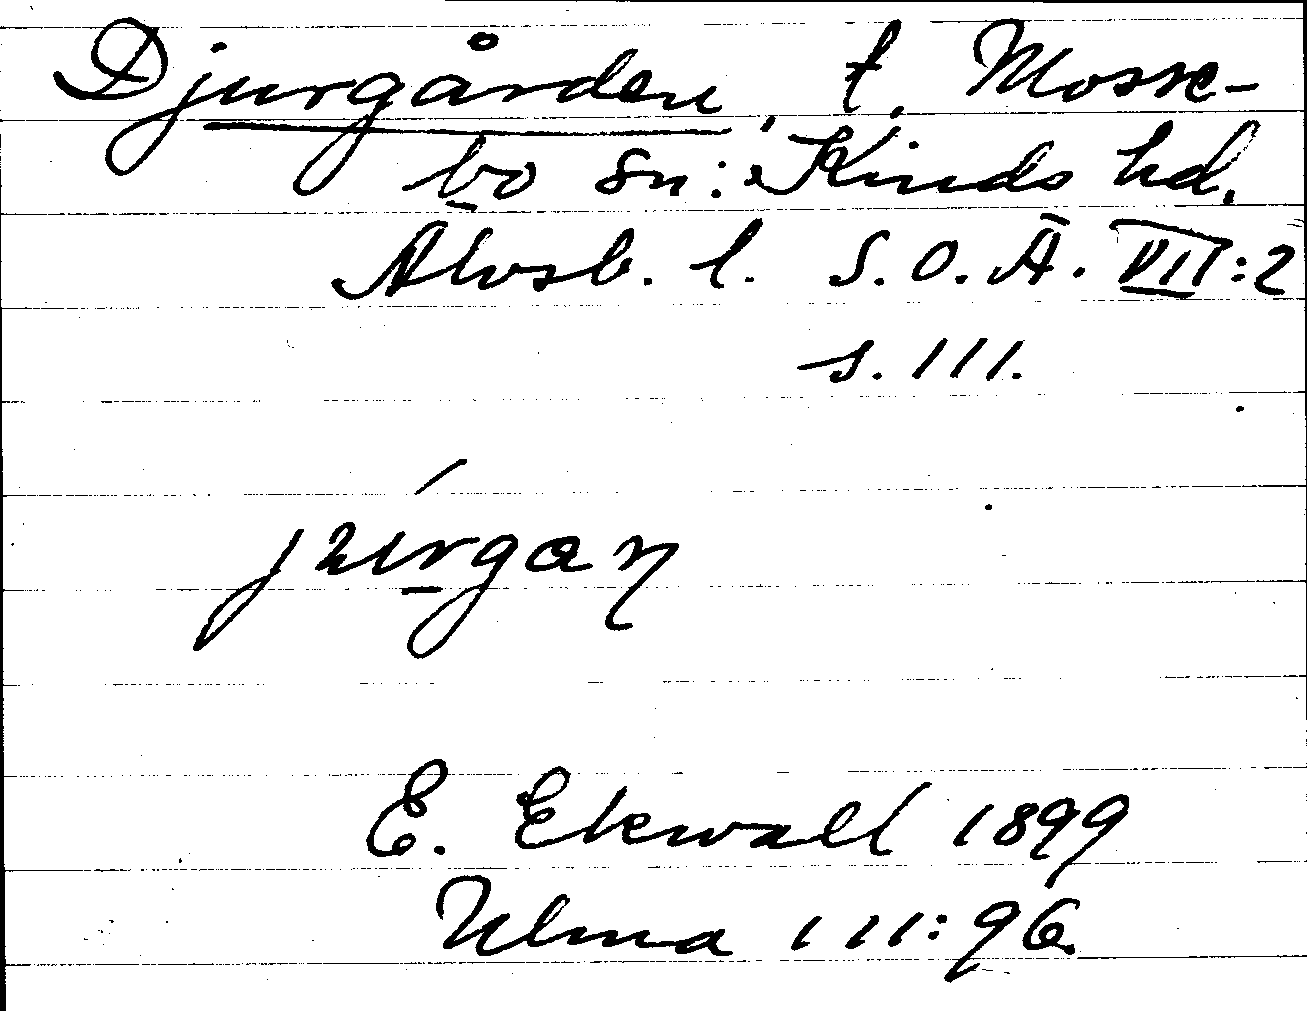 Djurgården, t. Mosse-
bo sn: Kinds hd.
Älvsb. l. S.O.Ä. VII:2
s. 111.
E. Ekwall 1899
Ulma 111:96.